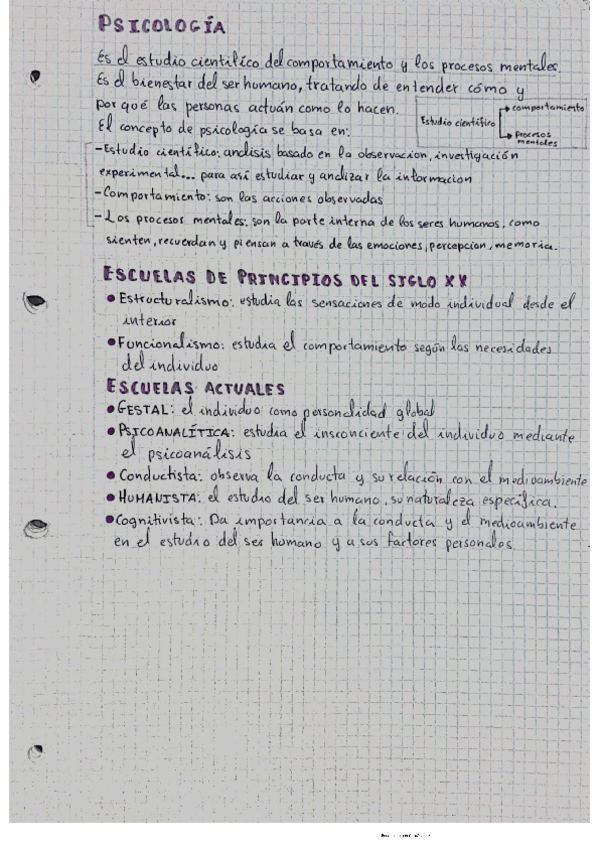 PSICOLOGÍA
Es el estudio científico del comportamiento y los procesos mentales.
Es el bienestar del ser humano, tratando de entender cómo y
por qué las personas actuán como lo hacen.
Estudio científico
comportamiento
Procesos
mentales
El concepto de psicología se basa en:
-Estudio científico: analisis basado en la observacion, investigación
experimental... para así estudiar y analizar la informacion
-Comportamiento: son las acciones observadas
-Los procesos mentales: son la parte interna de los seres humanos, como
sienten, recuerdan y piensan a través de las emociones, percepcion, memoria.
ESCUELAS DE PRINCIPIOS DEL SIGLO XX
•Estructuralismo: estudia las sensaciones de modo individual desde el
interior
•Funcionalismo: estudia el comportamiento según las necesidades
del individuo
ESCUELAS ACTUALES
•GESTAL: el individuo como personalidad global
•PSICOANALÍTICA: estudia el insconciente del individuo mediante
el psicoanálisis
•Conductista: observa la conducta y su relación con el medioambiente
•HUMANISTA: el estudio del ser humano, su naturaleza específica.
•Cognitivista: Da importancia a la conducta y el medioambiente
en el estudio del ser humano y a sus factores personales